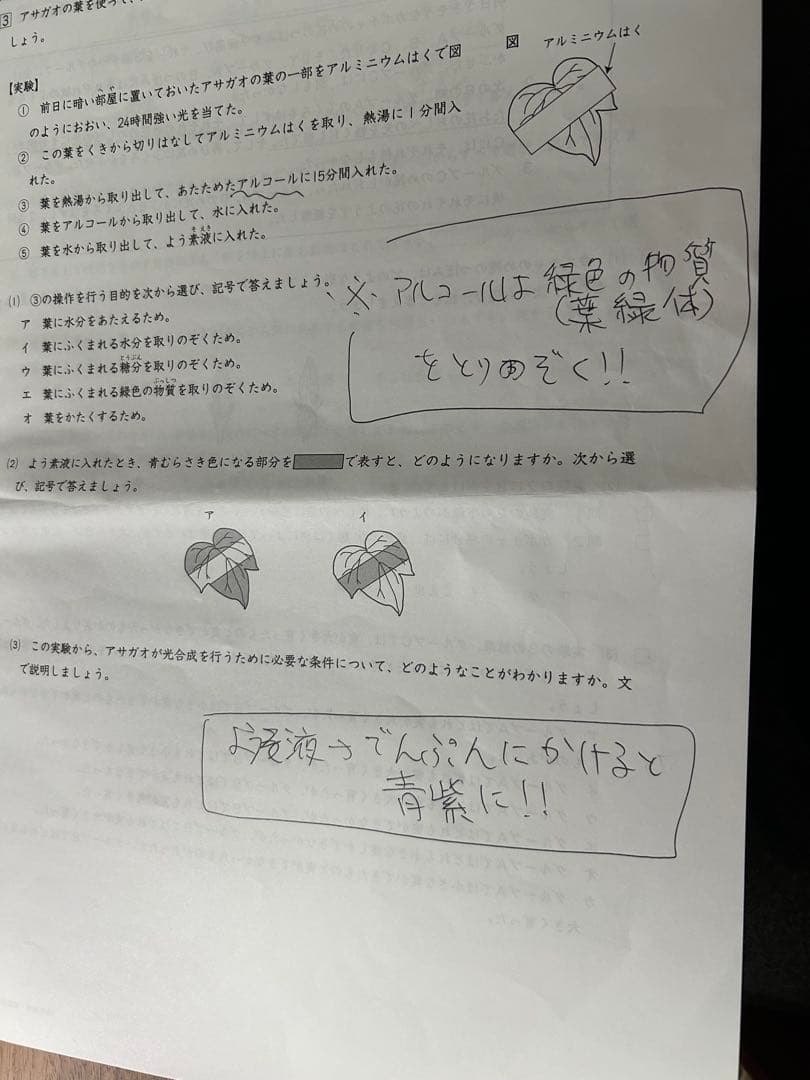 3 アサガオの葉を使って、
しょう。
図
アルミニウムはく
【実験】
① 前日に暗い部屋に置いておいたアサガオの葉の一部をアルミニウムはくで図
のようにおおい、24時間強い光を当てた。
② この葉をくきから切りはなしてアルミニウムはくを取り、熱湯に1分間入
れた。
③ 葉を熱湯から取り出して、あたためたアルコールに15分間入れた。
④ 葉をアルコールから取り出して、水に入れた。
⑤ 葉を水から取り出して、よう素液に入れた。
※ アルコールは緑色の物質
(葉緑体)
をとりのぞく!!
(1) ③の操作を行う目的を次から選び、記号で答えましょう。
ア 葉に水分をあたえるため。
イ 葉にふくまれる水分を取りのぞくため。
ウ 葉にふくまれる糖分を取りのぞくため。
エ 葉にふくまれる緑色の物質を取りのぞくため。
オ 葉をかたくするため。
(2) よう素液に入れたとき、青むらさき色になる部分を で表すと、どのようになりますか。次から選
び、記号で答えましょう。
ア イ
(3) この実験から、アサガオが光合成を行うために必要な条件について、どのようなことがわかりますか。文
で説明しましょう。
液→でんぷんにかけると
青紫に!!